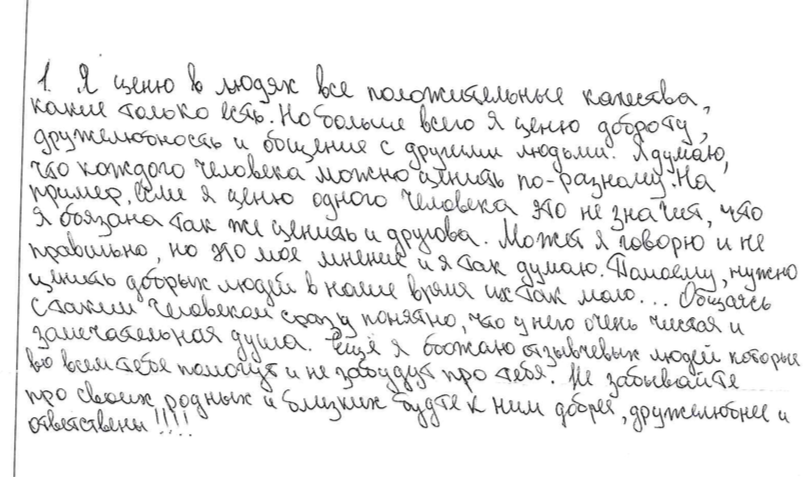 1. Я ценю в людях все положительные качества,
какие только есть. Но больше всего я ценю доброту,
дружелюбность и общение с другими людьми. Я думаю,
что каждого человека можно ценить по-разному. На
пример, если я ценю одного человека это не значит, что
я обязана так же ценить и другова. Может я говорю и не
правильно, но это мое мнение и я так думаю. Помоему, нужно
ценить добрых людей в наше время их так мало... Общаясь
с таким человеком сразу понятно, что у него очень чистая и
замечательная душа. Ещё я обожаю отзывчевых людей которые
во всем тебе помогут и не забудут про тебя. Не забывайте
про своих родных и близких будте к ним добрее, дружелюбнее и
ответствены!!!!